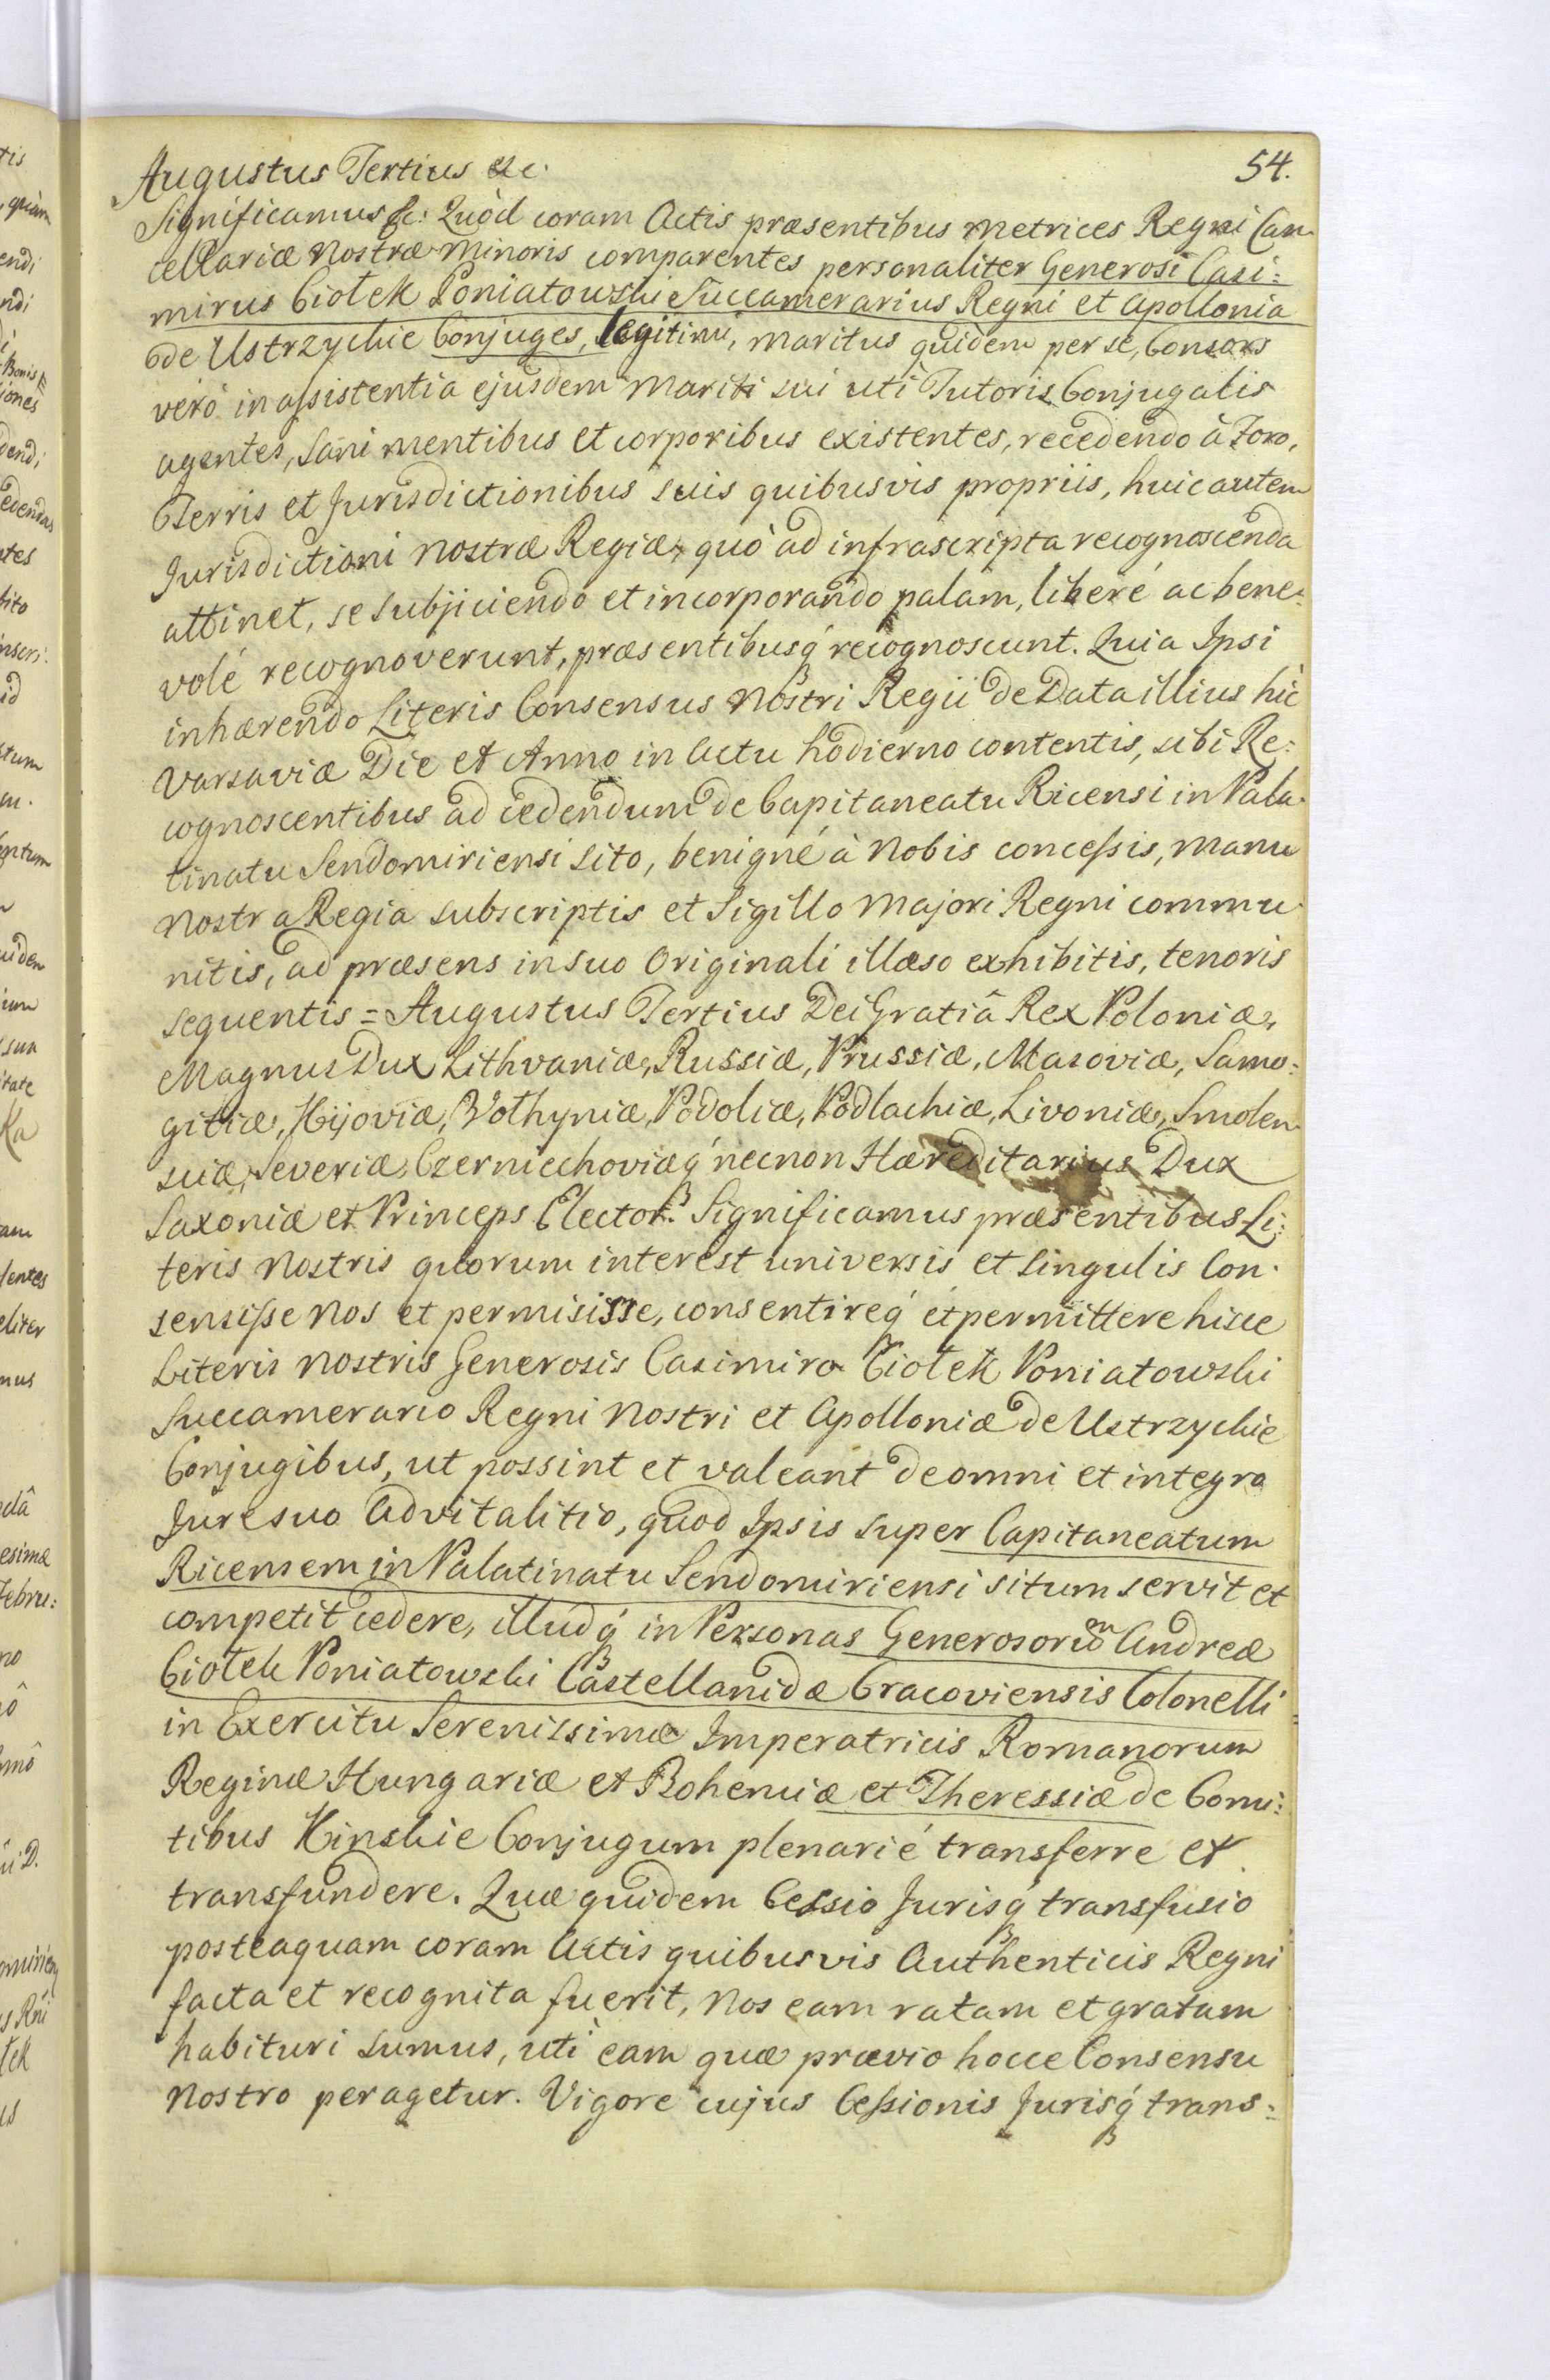 54.
Augustus Tertius etc.
Significamus etc: Quòd coram Actis præsentibus Metrices Regni Can-
cellariæ Nostræ Minoris comparentes personaliter Generosi Casi:
mirus Ciołek Poniatowski Succamerarius Regni et Apollonia
de Ustrzyckie Conjuges, legitimi, maritus quidem per se, Consors
verò in assistentia ejusdem Mariti sui uti Tutoris Conjugalis
agentes, Sani mentibus et corporibus existentes, recedendo à Foro,
Terris et Jurisdictionibus suis quibusvis propriis, huic autem
Jurisdictioni Nostræ Regiæ, quò ad infrascripta recognoscenda
attinet, se subjiciendo et incorporando palam, liberé ac bene:
volé recognoverunt, præsentibusq́ recognoscunt. Quia Ipsi
inhærendo Literis Consensus Nostri Regii de Data illius hìc
Varsaviæ Die et Anno in Actu hodierno contentis, sibi Re:
cognoscentibus ad cedendum de Capitaneatu Ricensi in Pala-
tinatu Sendomiriensi sito, benigné à Nobis concessis, Manu
Nostra Regia subscriptis et Sigillo Majori Regni commu-
nitis, ad præsens in suo Originali illæso exhibitis, tenoris
sequentis = Augustus Tertius Dei Gratiâ Rex Poloniæ,
Magnus Dux Lithvaniæ, Russiæ, Prussiæ, Masoviæ, Samo:
gitiæ, Kijoviæ, Volhyniæ, Podoliæ, Podlachiæ, Livoniæ, Smolen-
sciæ, Severiæ, Czerniechoviæq́ necnon Hæreditarius Dux
Saxoniæ et Princeps Elector. Significamus præsentibus Li:
teris Nostris quorum interest universis et singulis Con-
sensisse Nos et permisisse, consentireq́ et permittere hisce
Literis Nostris Generosis Casimiro Ciołek Poniatowski
Succamerario Regni Nostri et Apolloniæ de Ustrzyckie
Conjugibus, ut possint et valeant de omni et integro
Jure suo Advitalitio, quod Ipsis super Capitaneatum
Ricensem in Palatinatu Sendomiriensi situm servit et
competit cedere, illudq́ in Personas Generosorum Andreæ
Ciołek Poniatowski Castellanidæ Cracoviensis Colonelli
in Exercitu Serenissimæ Imperatricis Romanorum
Reginæ Hungariæ et Bohemiæ et Theressiæ de Comi:
tibus Kinskie Conjugum plenarié transferre et
transfundere. Quæ quidem Cessio Jurisq́ transfusio
posteaquam coram Actis quibusvis Authenticis Regni
facta et recognita fuerit, Nos eam ratam et gratam
habituri sumus, uti eam quæ prævio hocce Consensu
Nostro peragetur. Vigore cujus Cessionis Jurisq́ trans: